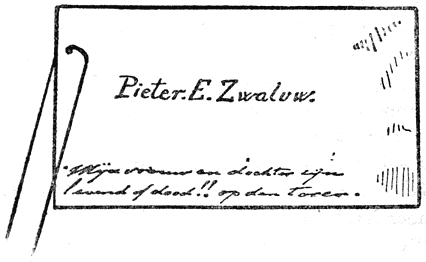 Pieter.E.Zwaluw.
Mijne vrouw en dochter zijn
levend of dood!! op den toren.